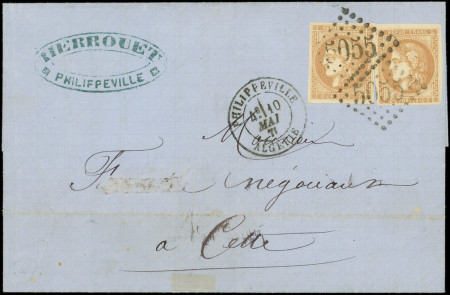 HERROUET
PHILIPPEVILLE
5055
5055
PHILIPPEVILLE
10
MAI
71
ALGERIE
Monsieur
F négociant
a Cette